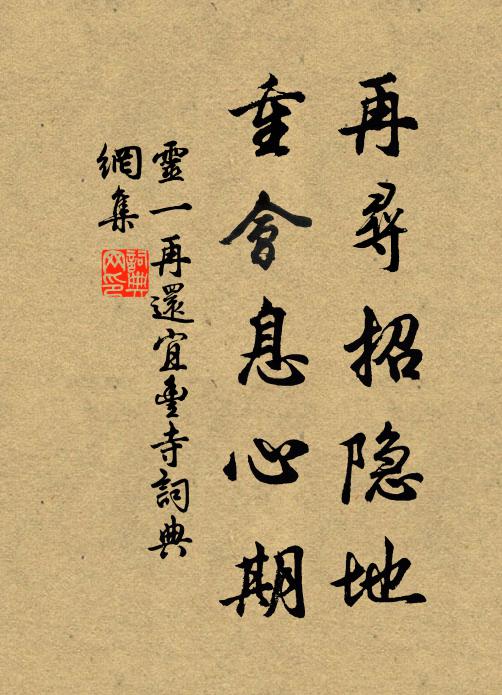 再尋招隐地
重會息心期
靈一再還宜豐寺詞典
網集
詞典網印